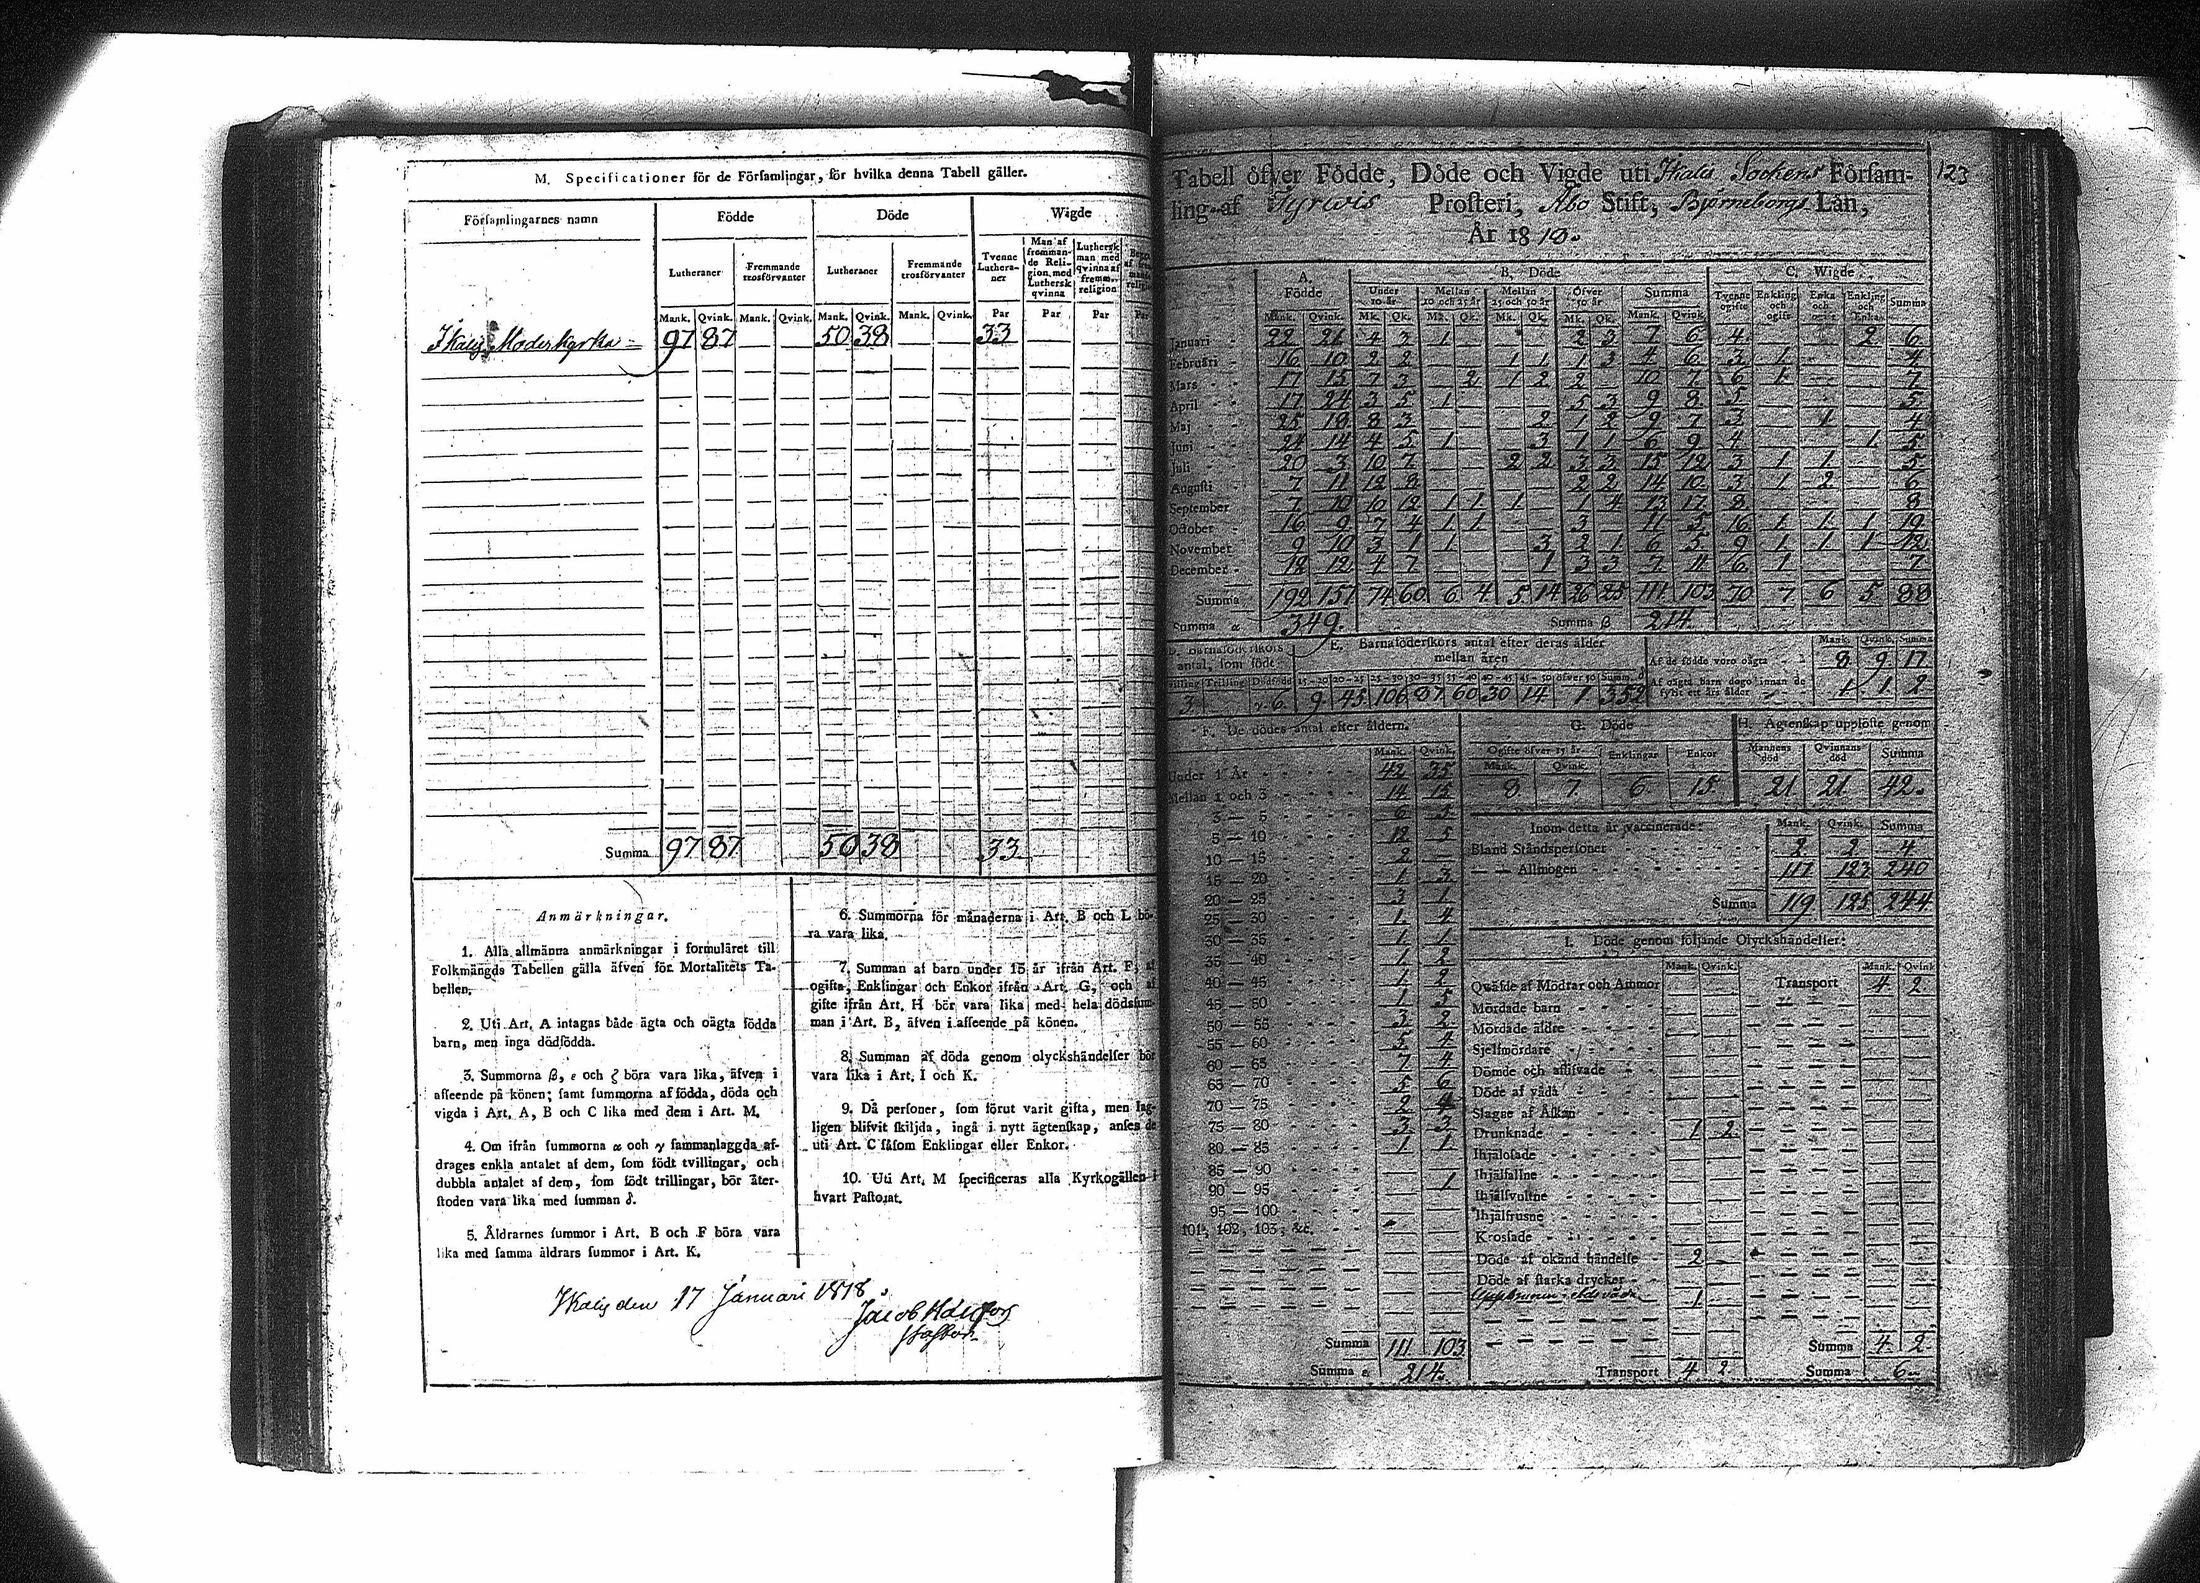 M. Specificationer för de Församlingar, för hvilka denna Tabell gäller.
Församlingarnes namn Födde Döde Wigde
Lutheraner Fremmande trosförvanter Lutheraner Fremmande trosförvanter Tvenne Lutheraner Man af fremmande Religion med Luthersk qvinna Luthersk man med qvinna af fremm. religion
Mank. Qvink. Mank. Qvink. Mank. Qvink. Mank. Qvink. Par Par Par Par
Ikalis Moderkyrka 97 87 50 38 33
Summa 97 87 50 38 33
Anmärkningar.
1. Alla allmänna anmärkningar i formuläret till
Folkmängds Tabellen gälla äfven för Mortalitets Ta-
bellen.
2. Uti Art. A intagas både ägta och oägta födda
barn, men inga dödfödda.
3. Summorna β, ε och ζ böra vara lika, äfven i
afseende på könen; samt summorna af födda, döda och
vigda i Art. A, B och C lika med dem i Art. M.
4. Om ifrån summorna α och γ sammanlaggda af-
drages enkla antalet af dem, som födt tvillingar, och
dubbla antalet af dem, som födt trillingar, bör åter-
stoden vara lika med summan δ.
5. Åldrarnes summor i Art. B och F böra vara
lika med samma åldrars summor i Art. K.
6. Summorna för månaderna i Art. B och L bö-
ra vara lika.
7. Summan af barn under 15 år ifrån Art. F, af
ogifta, Enklingar och Enkor ifrån Art. G, och af
gifte ifrån Art. H bör vara lika med hela dödssum-
man i Art. B, äfven i afseende på könen.
8. Summan af döda genom olyckshändelser bör
vara lika i Art. I och K.
9. Då personer, som förut varit gifta, men lag-
ligen blifvit skiljda, ingå i nytt ägtenskap, anses de
uti Art. C såsom Enklingar eller Enkor.
10. Uti Art. M specificeras alla Kyrkogällen i
hvart Pastorat.
Ikalis den 17 Januari 1818.
Jacob
Tabell öfver Födde, Döde och Vigde uti Ikalis Sockens Församling af Tyrwis Prosteri, Åbo Stift, Björneborgs Län,
123
År 1818.
A. Födde B. Döde C. Wigde
Under 10 år Mellan 10 och 25 år Mellan 25 och 50 år Öfver 50 år Summa Tvenne ogifte Enkling och ogift Enka och Enkling och Enka Summa
Mank. Qvink. Mk. Qk. Mk. Qk. Mk. Qk. Mk. Qk. Mank. Qvink.
Januari 22 21 4 3 1 2 3 7 6 4 2 6
Februari 16 10 2 2 1 1 1 3 4 6 3 1 4
Mars 17 15 7 3 2 1 2 2 10 7 6 1 7
April 17 24 3 5 1 5 3 9 8 5 5
Maj 25 18 8 3 2 1 2 9 7 3 1 4
Juni 24 14 4 5 1 3 1 1 6 9 4 1 5
Juli 20 3 10 7 2 2 3 3 15 12 3 1 1 5
Augusti 7 11 12 8 2 2 14 10 3 1 2 6
September 7 10 10 12 1 1 1 1 4 13 17 8 8
October 16 9 7 4 1 1 3 11 5 16 1 1 1 19
November 9 10 3 1 1 3 2 1 6 5 9 1 1 1 12
December 18 12 4 7 1 3 3 7 11 6 1 7
Summa 192 157 74 60 6 4 5 14 26 25 111 103 70 7 6 5 88
Summa α 349. Summa β 214
D. Barnaföderskors antal, som födt
Tvilling Trilling Dödfödd
3 6
E. Barnaföderskors antal efter deras ålder mellan åren
15-20 20-25 25-30 30-35 35-40 40-45 45-50 öfver 50 Summ. δ
9 45 106 87 60 30 14 1 352
Mank. Qvink. Summa
Af de födde voro oägta 8 9 17
Af oägta barn dogo innan de fyllt ett års ålder 1 1 2
F. De dödes antal efter åldern.
Mank. Qvink.
Under 1 År 42 35
Mellan 1 och 3 14 15
3 — 5 6 5
5 — 10 12 5
10 — 15 2
15 — 20 1 3
20 — 25 3 1
25 — 30 1 4
30 — 35 1 1
35 — 40 1 2
40 — 45 1 2
45 — 50 1 5
50 — 55 3 2
55 — 60 5 4
60 — 65 7 4
65 — 70 5 6
70 — 75 2 4
75 — 80 3 3
80 — 85 1 1
85 — 90
90 — 95 1
95 — 100
101, 102, 103, &c.
Summa 111 103
Summa ε 214.
G. Döde
Ogifte öfver 15 år Enklingar Enkor
Mank. Qvink.
8 7 6 15
H. Ägtenskap upplöste genom
Mannens död Qvinnans död Summa
21 21 42.
Inom detta år vaccinerade: Mank. Qvink. Summa
Bland Ståndspersoner 2 2 4
— — Allmogen 117 123 240
Summa 119 125 244
I. Döde genom följande Olyckshändelser:
Mank. Qvink. Mank. Qvink.
Qväfde af Mödrar och Ammor Transport 4 2
Mördade barn
Mördade äldre
Sjelfmördare
Dömde och aflifvade
Döde af våda
Slagne af Åskan
Drunknade 1 2
Ihjälosade
Ihjälfallne
Ihjälsvultne
Ihjälfrusne
Krossade
Döde af okänd händelse 2
Döde af starka drycker
1
Summa 4 2
Transport 4 2 Summa 6